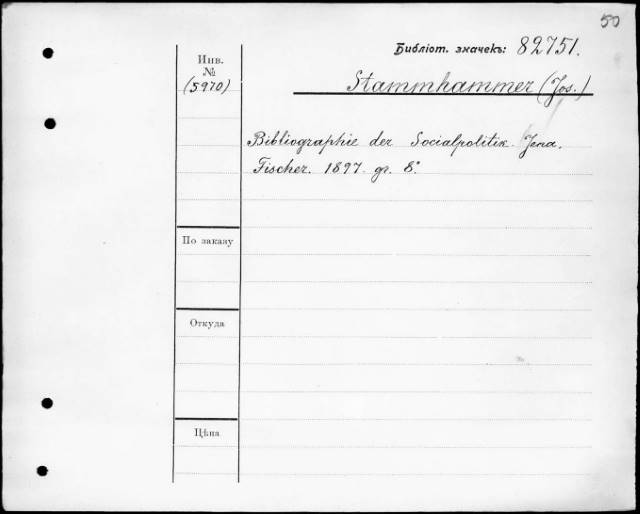 50
Библіот. значекъ: 82751.
Инв.
№
(5970)
Stammhammer (Jos.)
Bibliographie der Socialpolitik. Jena.
Fischer. 1897. gr. 8°.
По заказу
Откуда
Цѣна